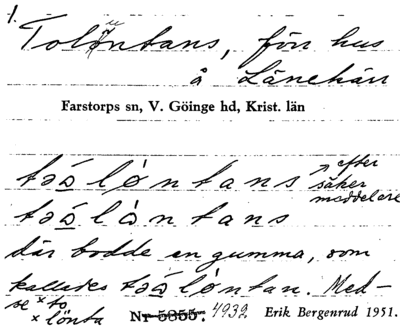 1.
Toluntans, förr hus
å Lånehärr
Farstorps sn, V. Göinge hd, Krist. län
tɔɔlöntans efter
säker
meddelare
tɔɔlöntans
där bodde en gumma, som
kallades tɔɔlöntan. Med-
se × to
× lönta
Nr 5855. 4932 Erik Bergenrud 1951.